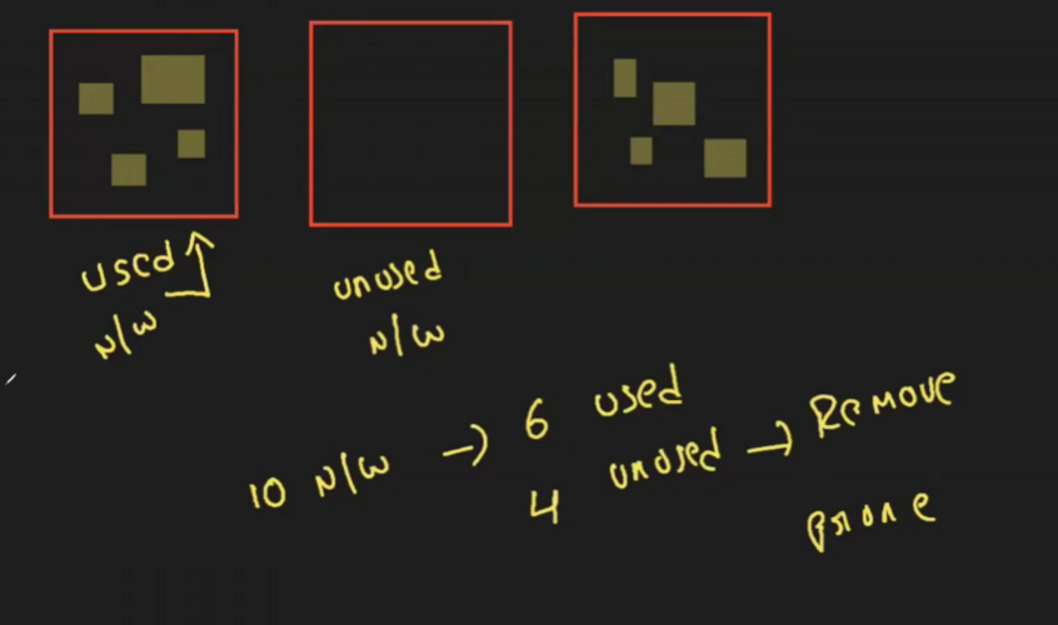 used
N/W
unused
N/W
10 N/W → 6 used
4 unused → Remove
prune